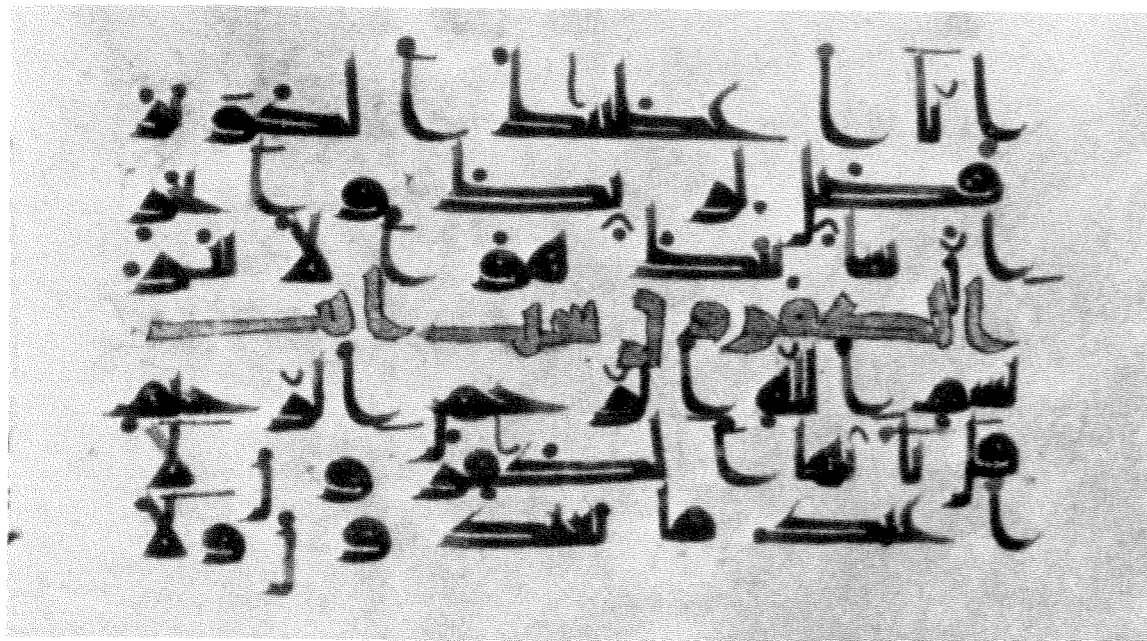 انا اعطينك الكوثر
فصل لربك وانحر
ان شانئك هو الابتر
الكفرون ست ايت
بسم الله الرحمن الرحيم
قل يايها الكفرون لا
اعبد ما تعبدون ولا